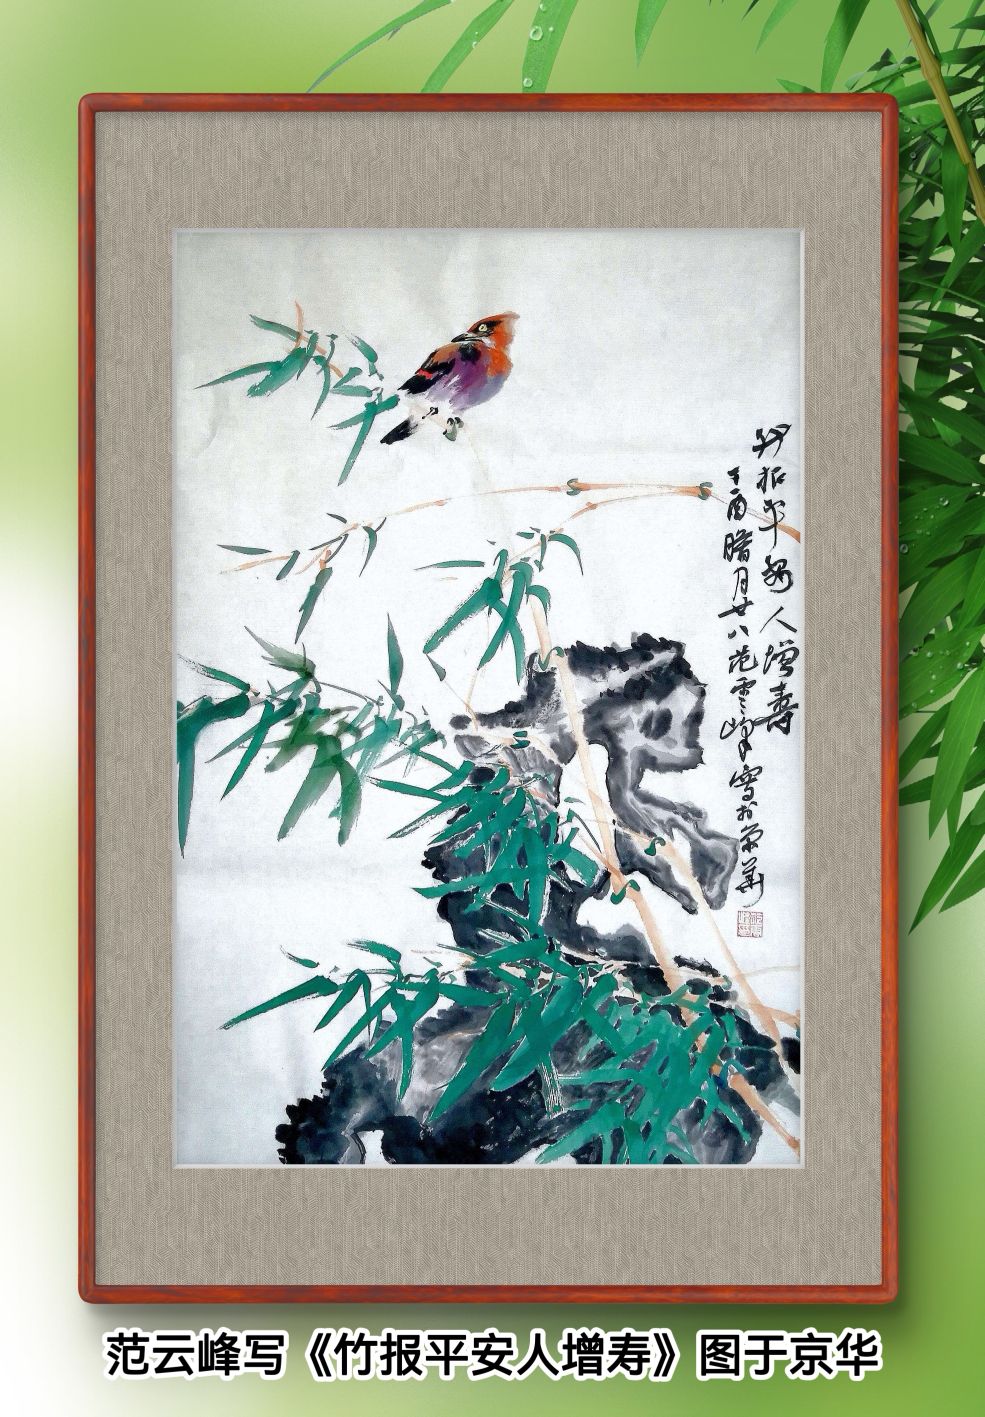 竹报平安人增寿
丁酉腊月廿八范雲峰写於京華
范云峰写《竹报平安人增寿》图于京华